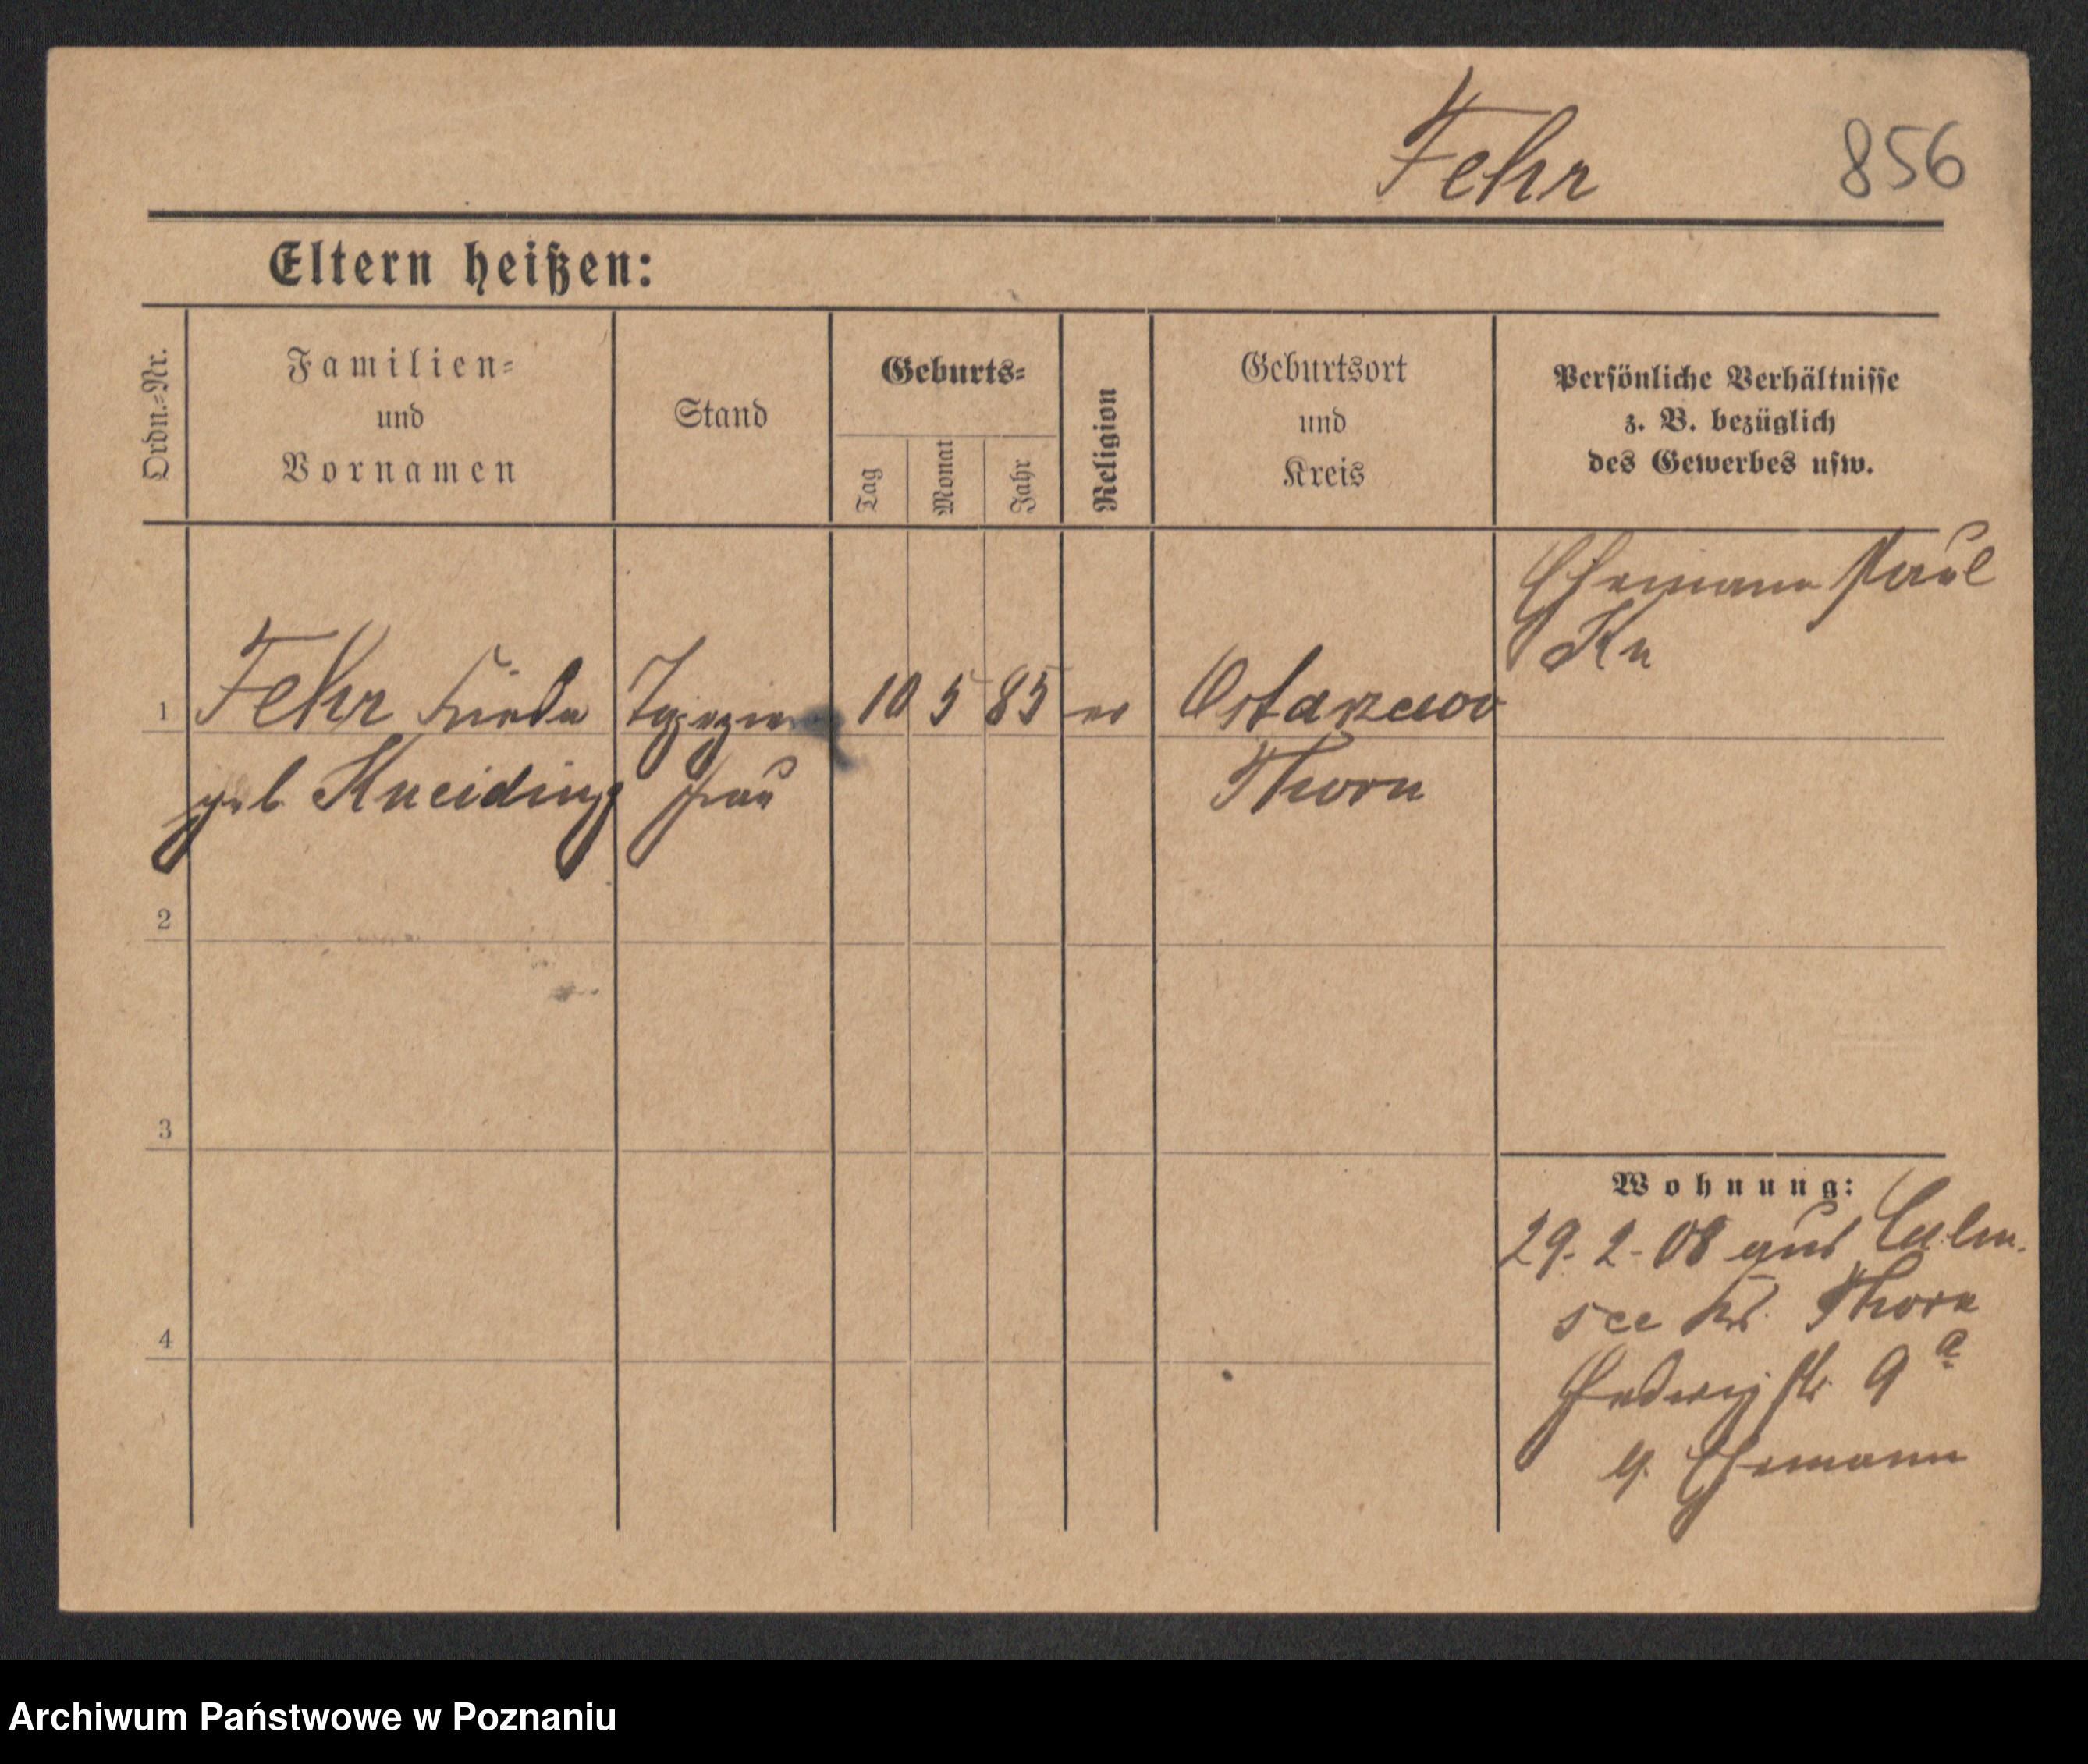 Fehr 856
Eltern heißen:
Ordn.-Nr.
Familien-
und
Vornamen
Stand
Geburts-
Tag
Monat
Jahr
Religion
Geburtsort
und
Kreis
Persönliche Verhältnisse
z. B. bezüglich
des Gewerbes usw.
Ehemann Paul
1 Fehr Frieda 10 5 85 ev
geb Kneiding frau
Thorn
2
3
4
Wohnung:
29. 2. 08 aus Culm.
see Kr. Thorn
Hedwigstr. 9a
Ehemann
Archiwum Państwowe w Poznaniu